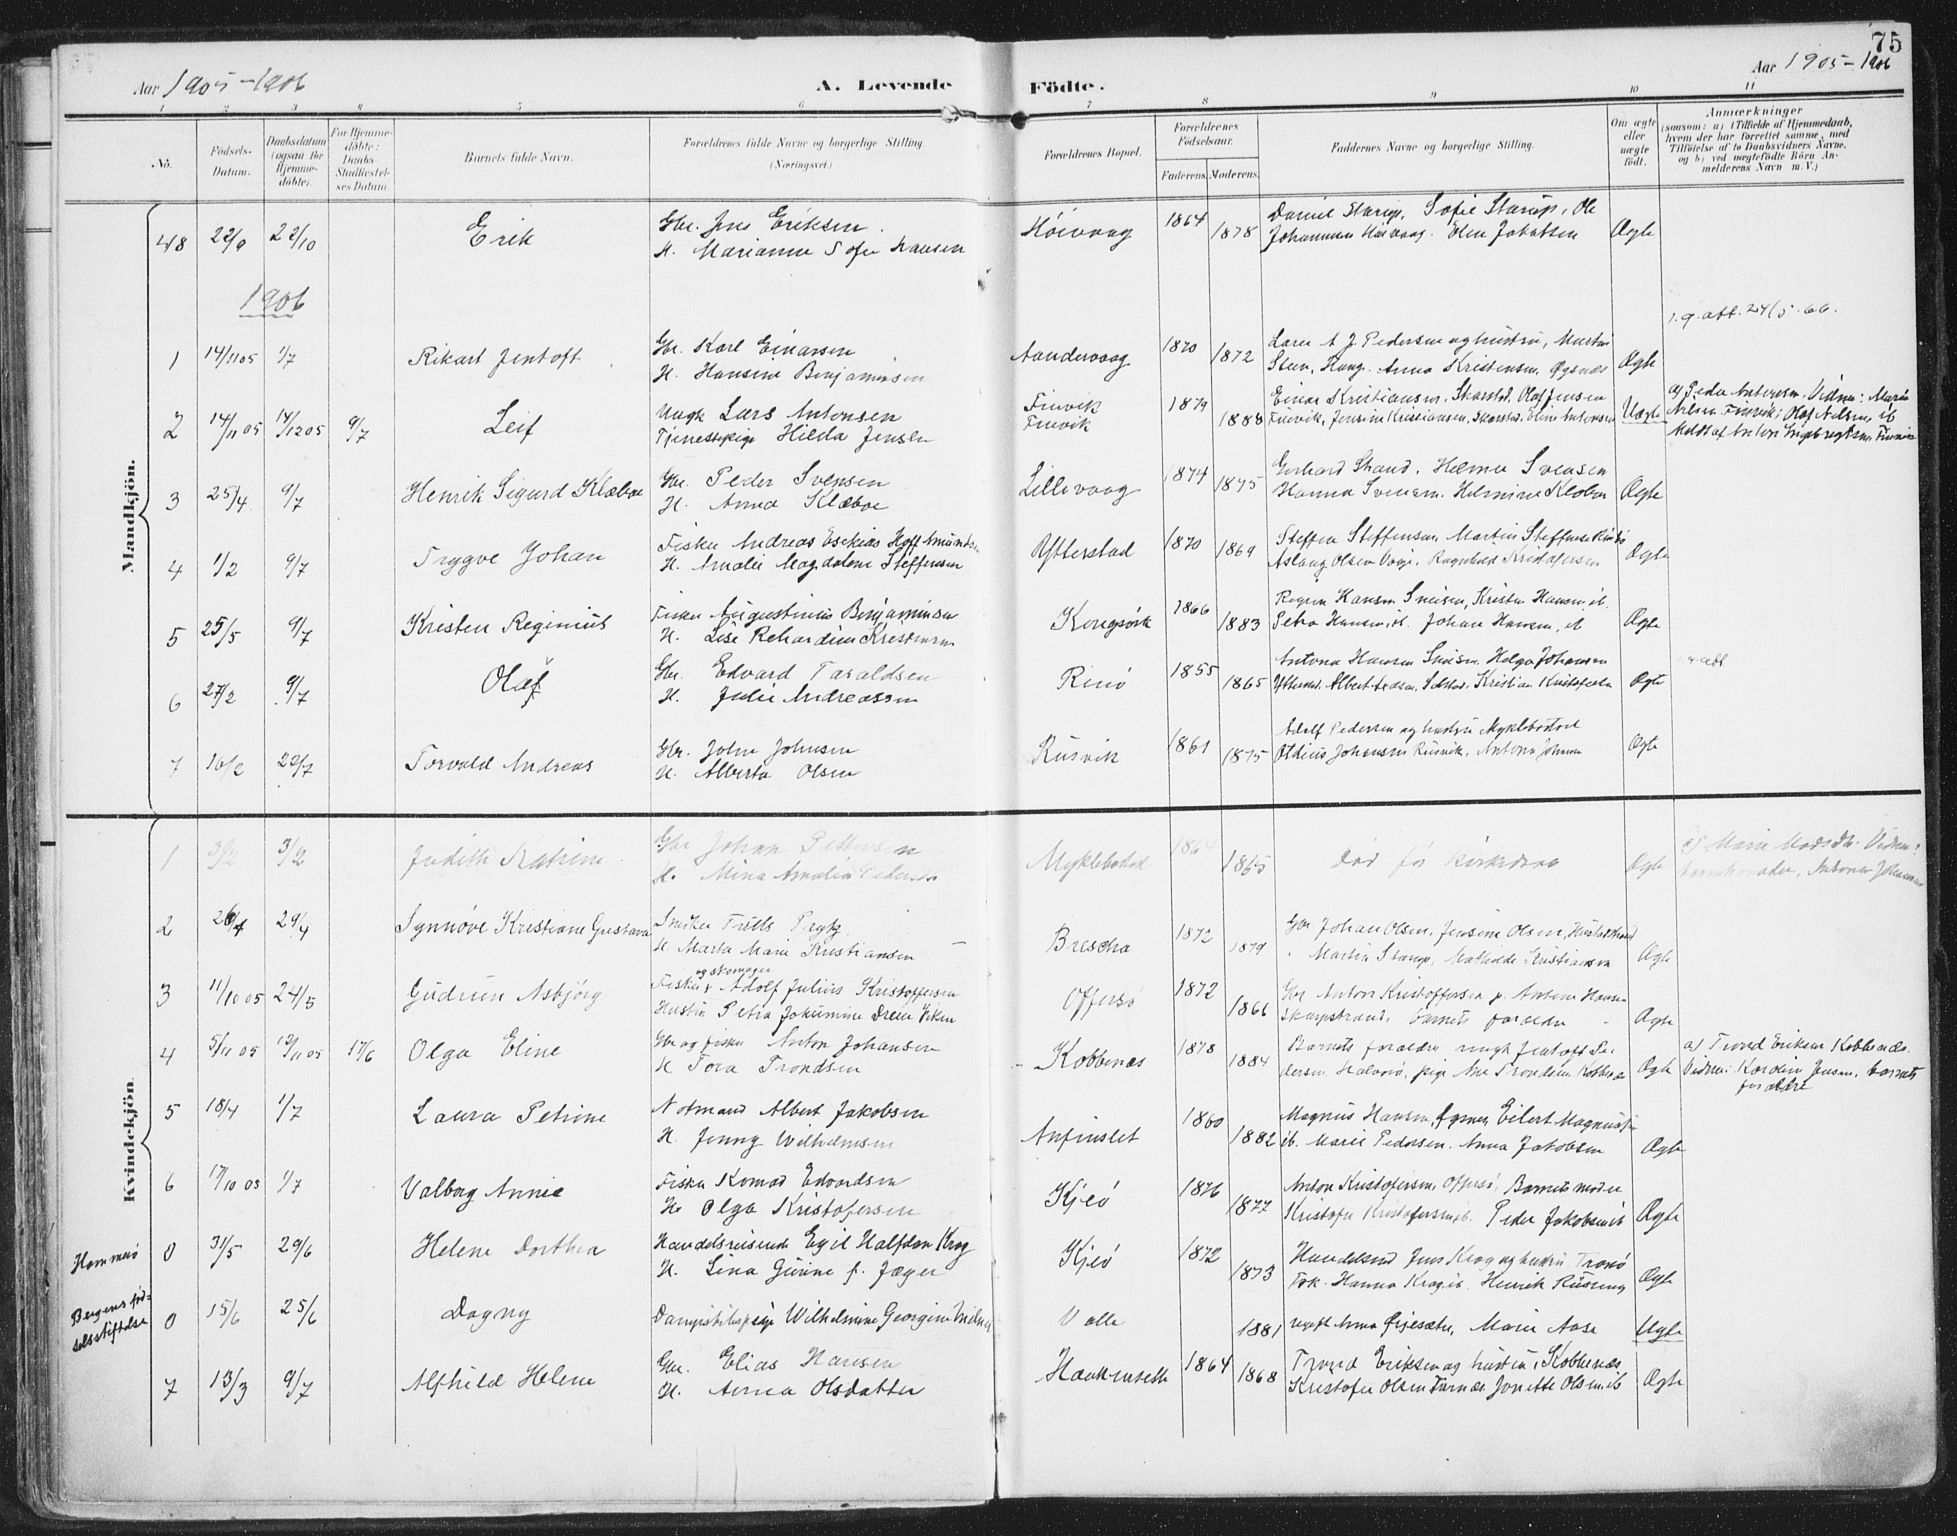 75
Aar 1905-1906 A. Levende Födte. Aar 1905-1906
1 2 3 4 5 6 7 8 9 10 11
No. Födsels-Datum. Daabsdatum (ogsaa for Hjemmedöbte). For Hjemmedöbte: Daabs Stadfæstelses Datum. Barnets fulde Navn. Forældrenes fulde Navne og borgerlige Stilling. (Næringsvei.) Forældrenes Bopæl. Forældrenes Födselsaar. Faderens. Moderens. Faddernes Navne og borgerlige Stilling. Om ægte eller uægte födt. Anmærkninger (saasom: a) i Tilfælde af Hjemmedaab, hvem der har forrettet samme, med Tilföielse af to Daabsvidners Navne, og b) ved uægtefödte Börn Anmelderens Navn m. V.)
Mandkjön.
48 22/9 22/10 Erik Gbr. Jens Eriksen Höivaag 1864 Daniel Starup, Sofie Starup, Ole
H. Marianne Sofie Hansen 1878 Johannesen Höivaag. Olea Jakobsen Ægte
1906
1.9.att. 24/5.66.
1 14/11 05 1/7 Rikart Jentoft Gbr. Karl Einarsen Aandervaag 1870 Lærer A J. Pedersen og hustru, Martin
H. Hansine Benjaminsen 1872 Steen, Haug. Anna Kristensen Ægte
2 14/11 05 14/12 05 9/7 Leif Ungk Lars Antonsen Finvik 1879 Einar Kristiansen, Skarstad, Olaf Jensen
Tjenestepige Hilda Jensen Finvik 1888 Finvik, Jensine Kristiansen, Skarstad, Eline Antonsen Uægte
a) Peder Antonsen. Vidner: Marie
Nilsen Finvik, Olaf Nilsen, ib
Meldt af Anton Ingebrigtsen Finvik
3 25/4 9/7 Henrik Sigurd Klæboe Gbr. Peder Svensen Lillevaag 1874 Gerhard Strand. Helmer Svensen
H. Anna Klæboe 1875 Hanna Svensen. Helmine Klæboe Ægte
4 1/2 9/7 Trygve Johan Fisker Andreas Esekias Hoff Amundsen Ytterstad 1870 Steffen Steffensen, Martin Steffensen
H. Amalie Magdalene Steffensen 1869 Aslaug Olsen Ragnhild Kristofersen Ægte
5 25/5 9/7 Kristen Reginius Fisker Augustinus Benjaminsen Kongsvik 1866 Hansen, Kristen Hansen, ib.
H. Lise Rikardine Kristensen 1883 Petra Hansen, ib. Johan Hansen, ib Ægte
6 27/2 9/7 Olaf Gbr. Edvard Taraldsen Rinö 1855 Antona Hansen Helga Johansen
H. Julie Andreassen 1865 Ytterstad. Albert Kristian Kristofersen Ægte
7 16/2 22/7 Torvald Andreas Gbr. John Johnsen Rusvik 1861 Adolf Pedersen og hustru Myklebostad
H. Alberta Olsen 1875 Johansen Rusvik, Antona Johnsen Ægte
Kvindekjön.
1 3/2 3/2 Judith Katrine Gbr Johan Pettersen Myklebostad 1864 Död för kirkedaab
H. Mina Amalie Pedersen 1865 Ægte
a) Marie Madsdtr. Vidner:
barnets moder, Antone Johannesen
2 26/4 29/4 Synnöve Kristiane Gustava Snedker Trills Prytz Brescha 1872 Gbr Johan Olsen, Jensine Olsen,
H Marta Marie Kristiansen 1879 Martin Starup, Mathilde Kristiansen Ægte
3 11/10 05 24/5 Gudrun Asbjörg Fisker og skomager Adolf Julius Kristoffersen Offersö 1872 Gbr Anton Kristoffersen p. Antone Hansen
Hustru Petra Jokumine Drene Viken 1866 Skarpstrand. barnets forældre Ægte
4 5/11 05 12/11 05 17/6 Olga Eline Gbr og fisker Anton Johansen Kobbenæs 1878 Barnets forældre ungk Jentoft Pe-
H Tora Trondsen 1884 dersen Halvarö, pige Ane Trondsen Kobbenæs Ægte
a) Trond Eriksen Kobbenæs.
Vidner: Karoline Jensen, barnets
forældre
5 18/4 1/7 Laura Petrine Notmand Albert Jakobsen Anfinslet 1860 Magnus Hansen, Eilert Magnussen
H. Jenny Wilhelmsen 1882 ib. Marie Pedersen. Anna Jakobsen Ægte
6 17/10 05 1/7 Valborg Annie Fisker Konrad Edvardsen Kjeö 1876 Anton Kristofersen. Offersö, Barnets moder
H. Olga Kristofersen 1877 Kristofer Kristofersen ib. Peder Jakobsen ib Ægte
Hammerö 0 31/5 29/6 Helene Dorthea Handelsreisende Egil Halfdan Krog Kjeö 1872 Handelsmd Jens Krog og hustru. Tranö
H. Lina Gurine f. Jæger 1873 Frk. Hanna Krog ib. Henrik Ægte
Bergens föd-
selsstiftelse 0 15/6 25/6 Dagny Dampskibspige Wilhelmine Georgine Valle 1881 ugift Anna Marie Aase Uægte
7 13/3 9/7 Alfhild Helene Gbr. Elias Hansen 1864 Trond Eriksen og hustru, Kobbenæs
H. Anna Olsdatter 1868 Kristofer Olsen Jonette Olsen ib Ægte